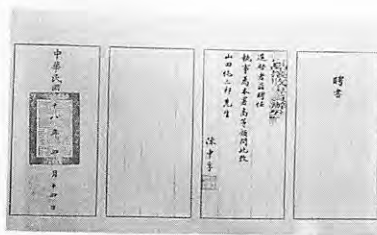 聘書
逕啟者茲聘任
執事為本署高等顧問此致
山田純三郎先生
陳中孚
中華民國十八年四月十四日